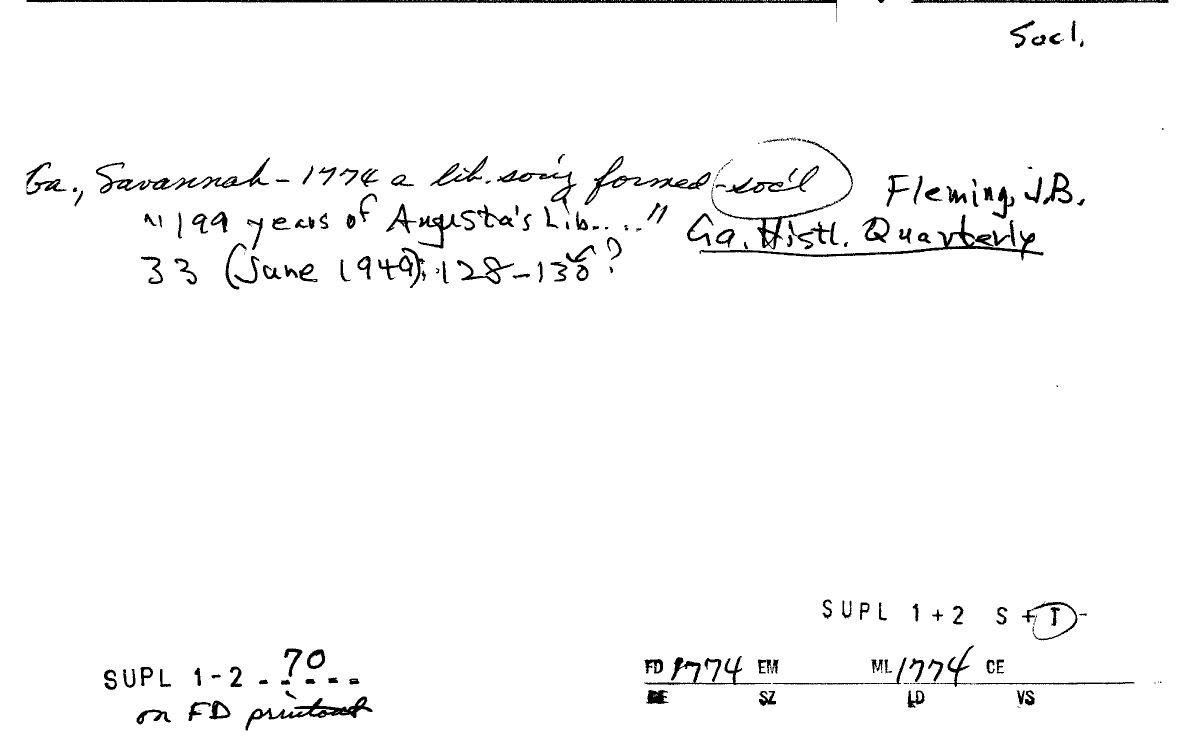 Socl.
Ga., Savannah - 1774 a lib. soc'y formed - soc'l
Fleming, J.B.
"199 years of Augusta's Lib....." Ga. Histl. Quarterly
33 (June 1949): 128-13 ?
SUPL 1+2 S+T-
SUPL 1-2 - 70 - - -
on FD printout
FD 1774 EM ML 1774 CE
SZ LD VS